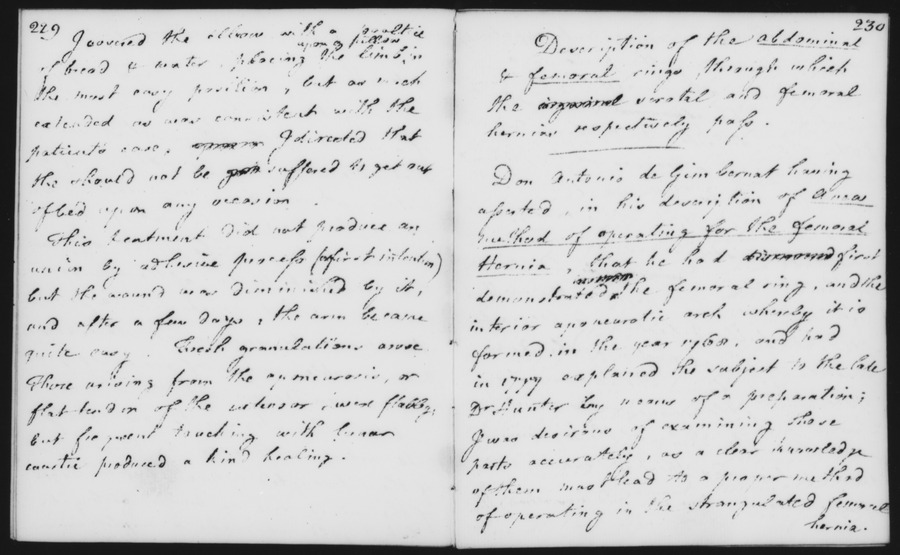 229
I covered the elbow with a poultice
of bread & water, placing the limb, in
upon a pillow
the most easy position, but as much
extended as was consistent with the
patients ease, I directed that
she should not be suffered to get out
of bed upon any occasion.
This treatment did not produce an
union by adhesive process (or first intention)
but the wound was diminished by it,
and after a few days, the arm became
quite easy. Fresh granulations arose.
Those arising from the aponeurosis, or
flat tendon of the extensor, were flabby,
but frequent touching with lunar
caustic produced a kind healing.
230
Description of the abdominal
& femoral rings through which
the scrotal and femoral
hernias respectively pass.
Don Antonio de Gimbernat having
asserted, in his description of a new
method of operating for the femoral
Hernia, that he had first
demonstrated the femoral ring, and the
interior aponeurotic arch whereby it is
formed, in the year 1768, and had
in 1777 explained the subject to the late
Dr Hunter by means of a preparation;
I was desirous of examining those
parts accurately, as a clear knowledge
of them must lead to a proper method
of operating in the strangulated femoral
hernia.